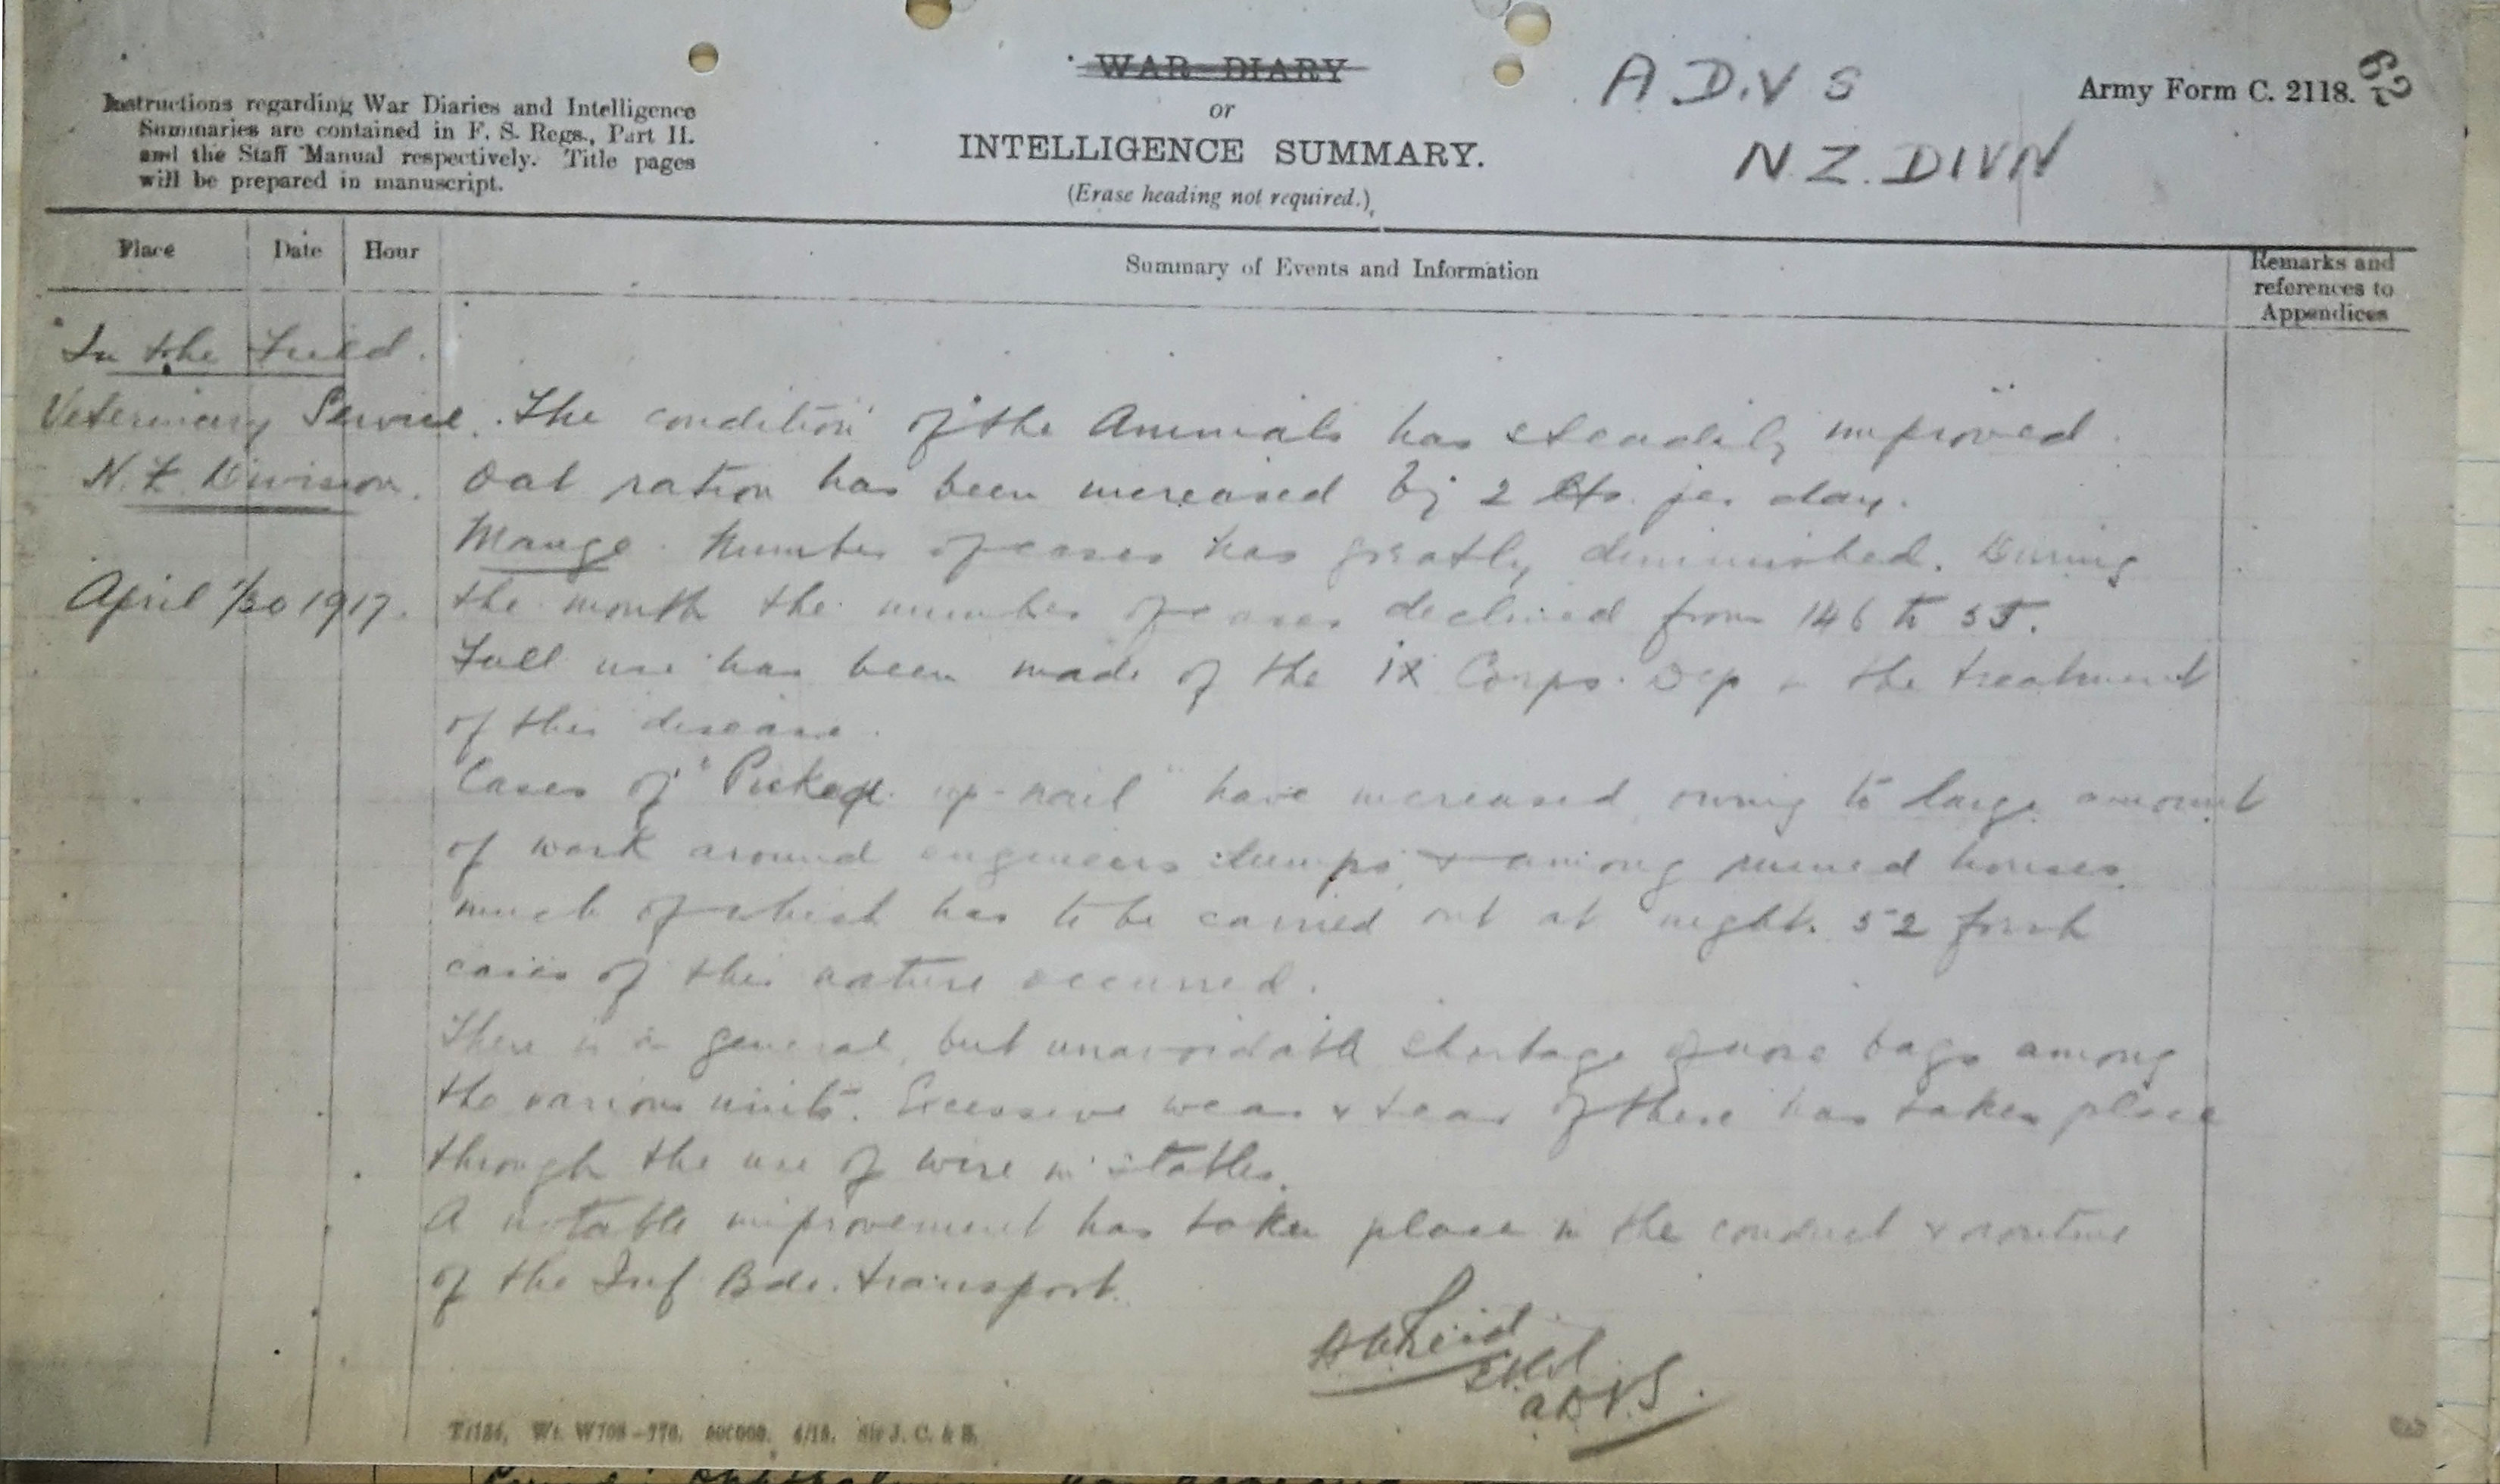 WAR DIARY
or
INTELLIGENCE SUMMARY.
(Erase heading not required.)
Instructions regarding War Diaries and Intelligence
Summaries are contained in F. S. Regs., Part II.
and the Staff Manual respectively. Title pages
will be prepared in manuscript.
A D.V S
N.Z. DIVN
Army Form C. 2118.
Place Date Hour Summary of Events and Information
Remarks and
references to
Appendices
In the Field.
Veterinary Service.
N.Z. Division.
April 1/30 1917.
The condition of the Animals has steadily improved.
Oat ration has been increased by 2 lbs. per day.
Mange. Number of cases has greatly diminished. During
the month the number of cases declined from 146 to 55.
Full use has been made of the IX Corps Dip in the treatment
of this disease.
Cases of "Picked up-nail" have increased owing to large amount
of work around engineers dumps, & among ruined houses,
much of which has to be carried out at night. 52 fresh
cases of this nature occurred.
There is a general, but unavoidable shortage of nose bags among
the various units. Excessive wear & tear of these has taken place
through the use of wire in stables.
A notable improvement has taken place in the conduct & routine
of the Inf. Bde. transport.
Reid
A.D.V.S.